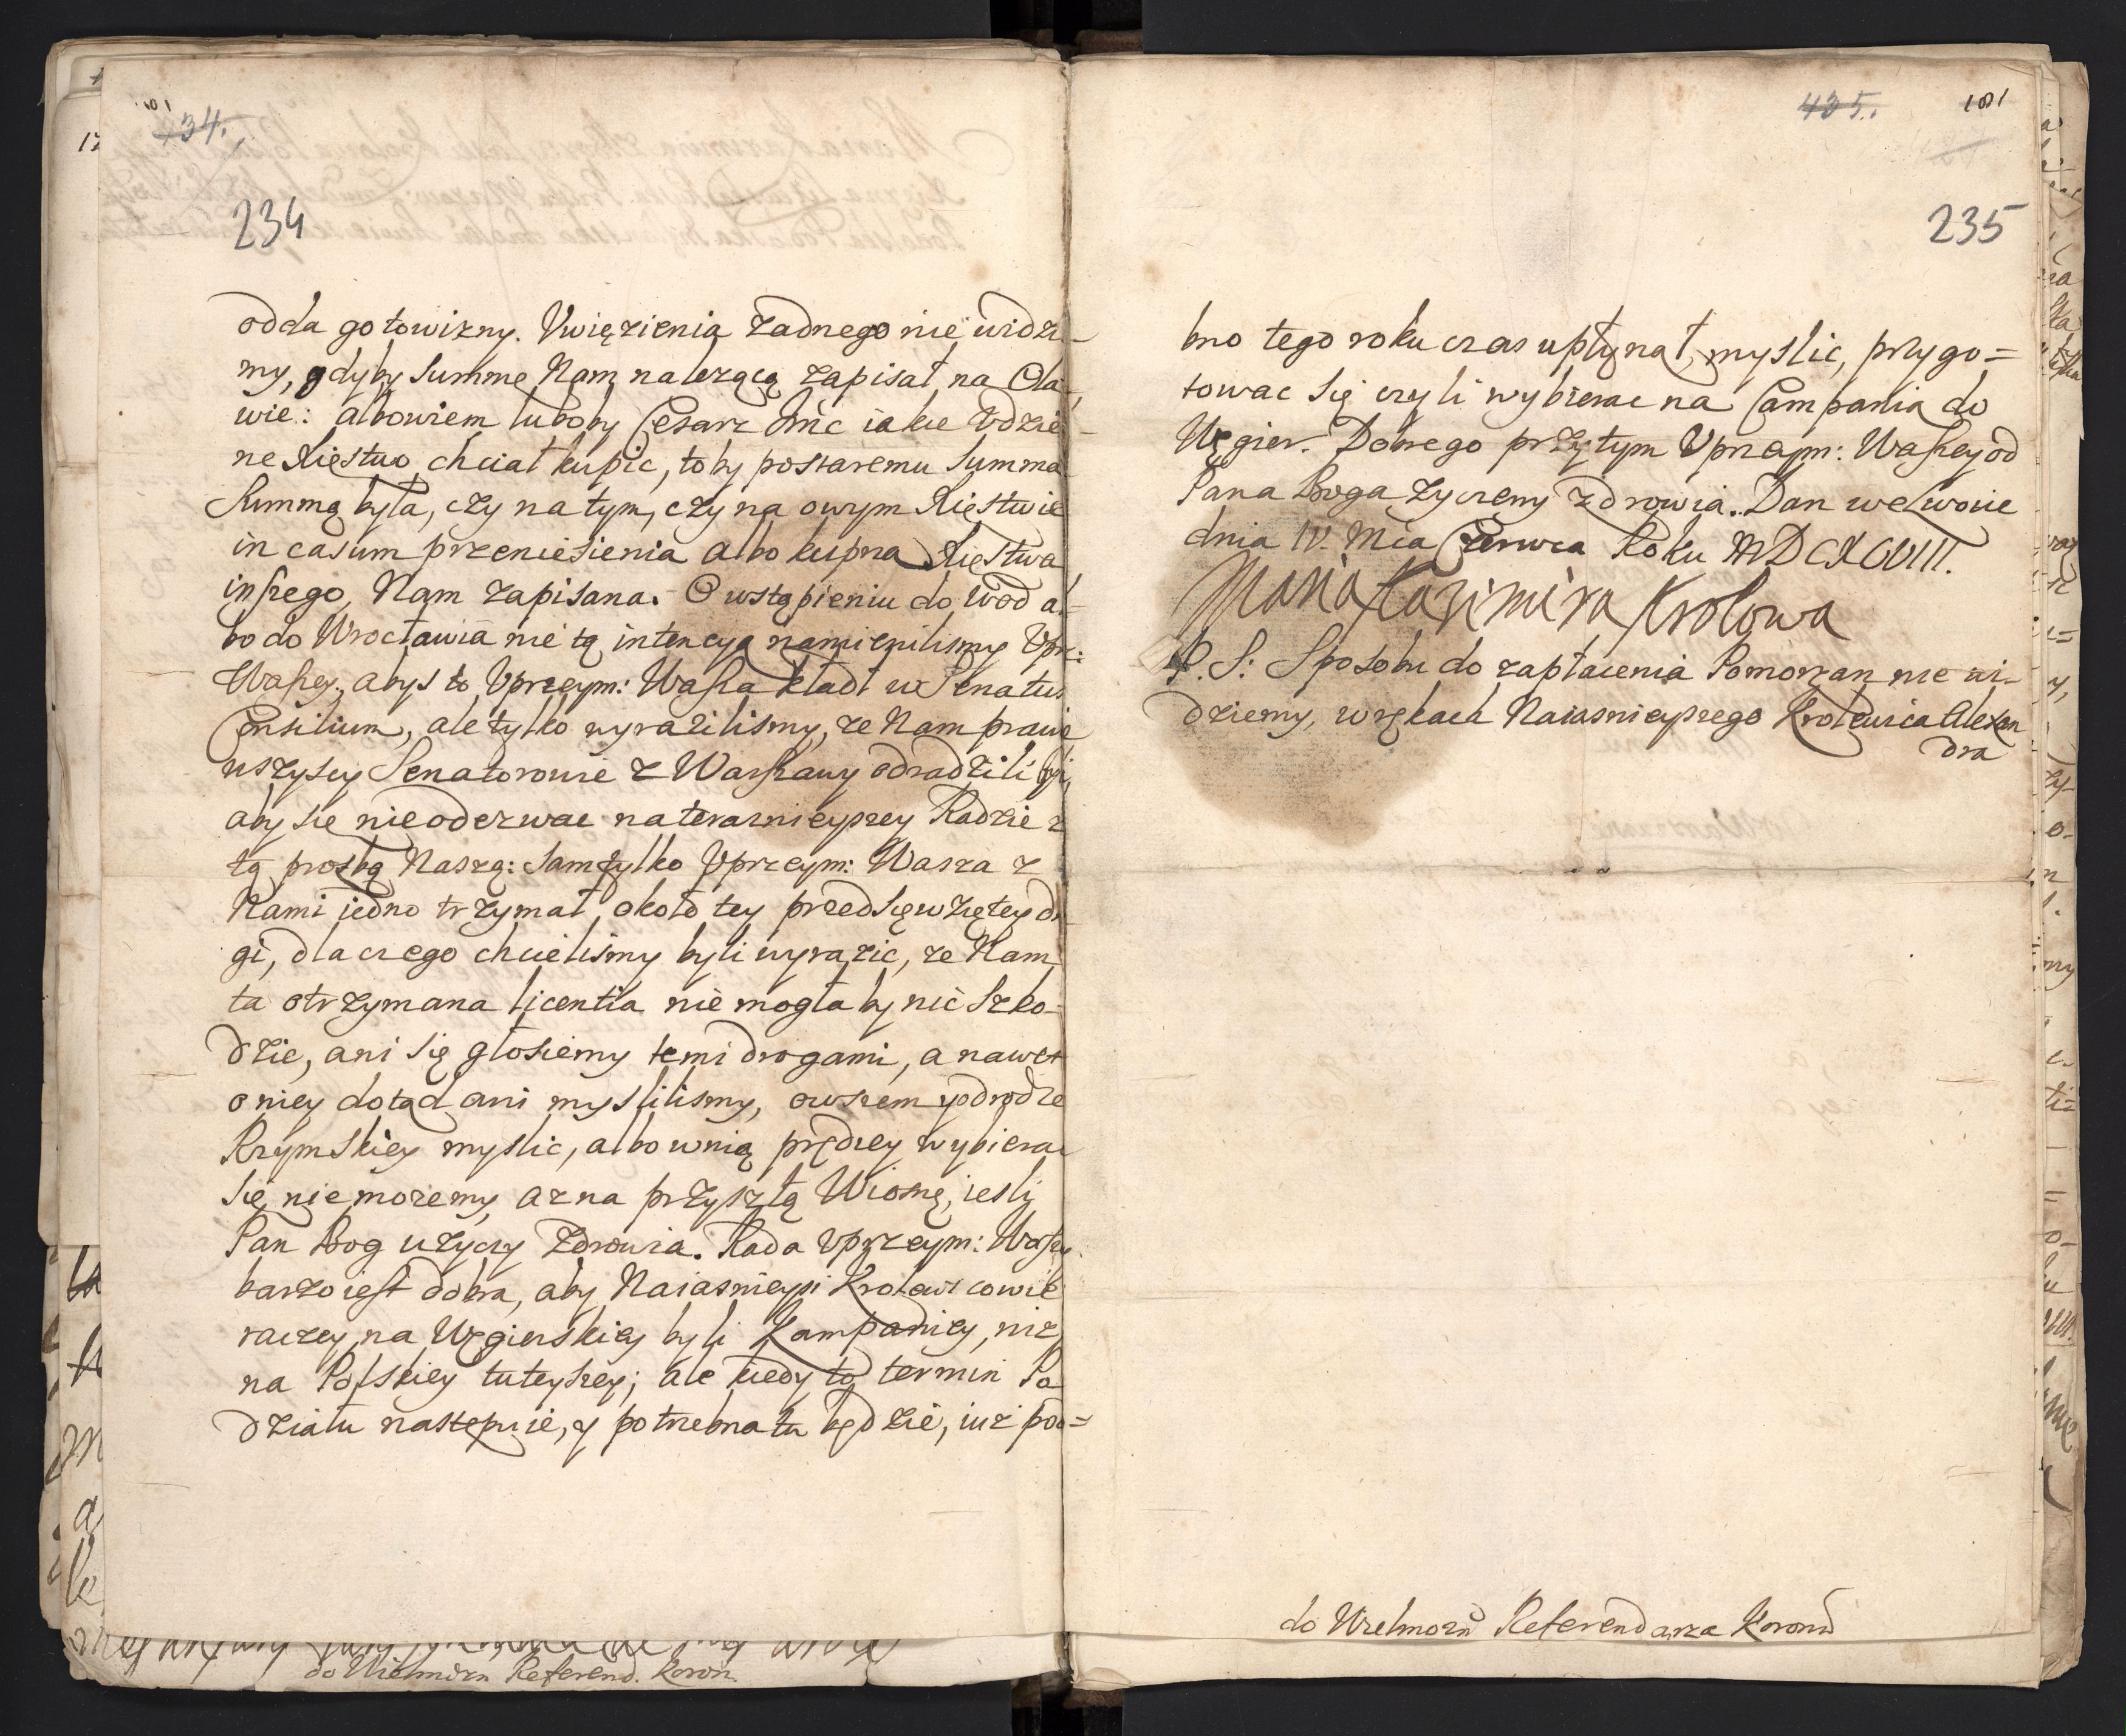 434.
234
odda gotowizny. Uwięzienia żadnego nie widzi-
my, gdyby summę Nam należącą zapisał na Oła-
wie: albowiem luboby Cesarz Jmć iakie Udziel-
ne Xięstwo chciał kupic, toby postaremu Summa
Summą była, czy na tym, czy na owym Xięstwie
in casum przeniesienia albo kupna Xięstwa
inszego, Nam zapisana. O wstąpieniu do wód al-
bo do Wrocławia nie tą intencyą namieniliśmy Uprz:
Waszey, abyś to Uprzeym: Wasza kładł w Senatus
Consilium, ale tylko wyraziliśmy, że Nam prawie
wszyscy Senatorowie z Warszawy odradzili byli,
aby się nieoderwac na teraznieyszey Radzie z
tą prośbą Naszą: Sam tylko Uprzeym: Wasza z
Nami jedno trzymał, około tey przedsięwziętey dro-
gi, dla czego chcieliśmy byli wyrazic, że Nam
ta otrzymana licentia nie mogłaby nic szko-
dzie, ani się głosiemy temi drogami, a nawet
o niey dotąd ani myśliliśmy, owszem y o drodze
Rzymskiey myslic, albo w nią prędzey wybierac
się nie możemy, aż na przyszłą Wiosnę, iesli
Pan Bog użyczy Zdrowia. Rada Uprzeym: Waszey
barzo iest dobra, aby Naiasnieysi Krolewicowie
raczey na Węgierskiey byli Kampaniey, niż
na Polskiey tuteyszey; ale kiedy to termin Po
działu nastepuie, y potrzebna tu będzie, iuż podo=
do Wielmożn Referend. Koron.
435.
181
235
bno tego roku czas upłynął, myslic, przygo=
towac się czyli wybierac na Campanią do
Węgier. Dobrego przytym Uprzeym: Waszey od
Pana Boga życzemy zdrowia. Dan we Lwowie
dnia IV. Mca Czerwca Roku MDCXCVIII.
Maria Kazimira Krolowa
P. S: Sposobu do zapłacenia Pomorzan nie wi-
dziemy, w rękach Naiasnieyszego Krolewica Alexan
dra
do Wielmożn Referendarza Koronn